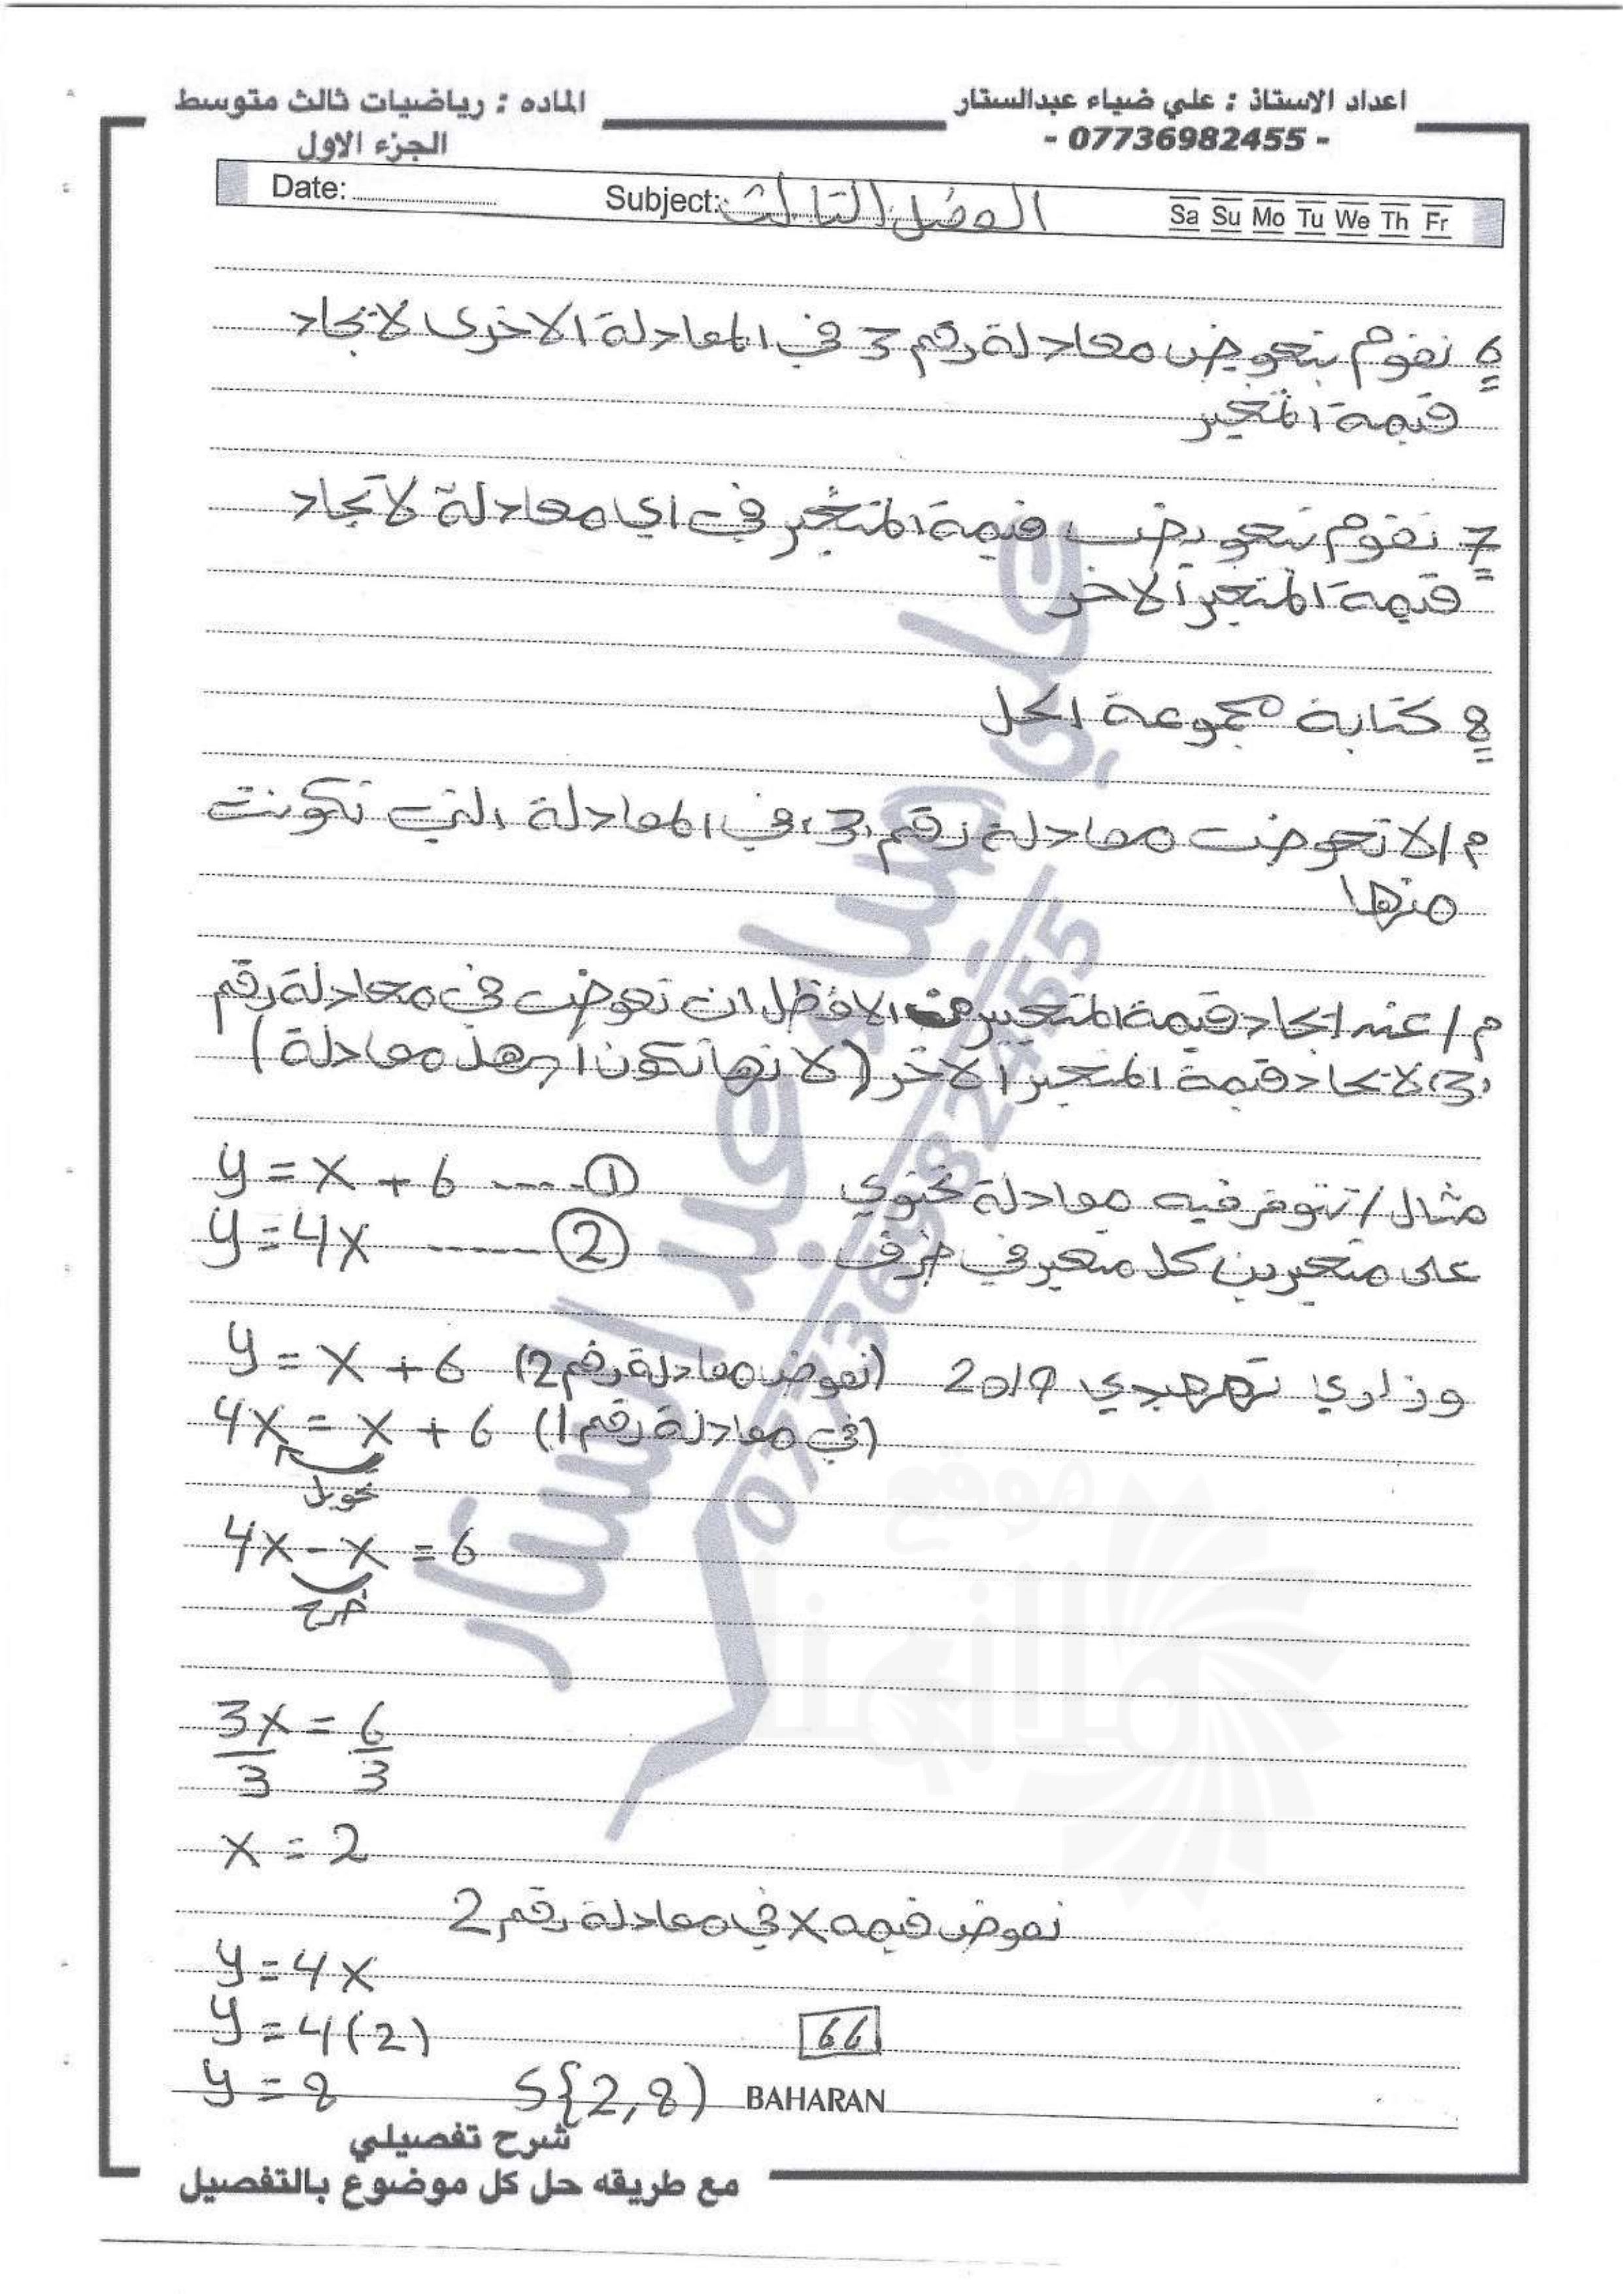 اعداد الاستاذ : علي ضياء عبدالستار
- 07736982455 -
الماده : رياضيات ثالث متوسط
الجزء الاول
Date: Subject: الفصل الثالث Sa Su Mo Tu We Th Fr
6 نقوم بتعويض معادلة رقم 3 في المعادلة الاخرى لايجاد
قيمة المتغير
7 نقوم بتعويض قيمة المتغير في اي معادلة لايجاد
قيمة المتغير الاخر
8 كتابة مجموعة الحل
م/ لا تعوض معادلة رقم 3 في المعادلة التي تكونت
منها
م/ عند ايجاد قيمة المتغير من الافظل ان تعوض في معادلة رقم
3 لايجاد قيمة المتغير الاخر (لانها تكون اجهز معادلة)
مثال/ تتوفر فيه معادلة تحتوي y = x + 6 ---- ①
على متغيرين كل متغير في طرف y = 4x ------ ②
وزاري تمهيدي 2019 y = x + 6 (نعوض معادلة رقم 2)
4x = x + 6 (في معادلة رقم 1)
تحويل
4x - x = 6
طرح
3x = 6
3 3
x = 2
نعوض قيمه x في معادلة رقم 2
y = 4x
y = 4(2)
66
y = 8 S{2,8) BAHARAN
شرح تفصيلي
مع طريقه حل كل موضوع بالتفصيل
علي ضياء عبد الستار
07736982455
موقع
ملازمنا